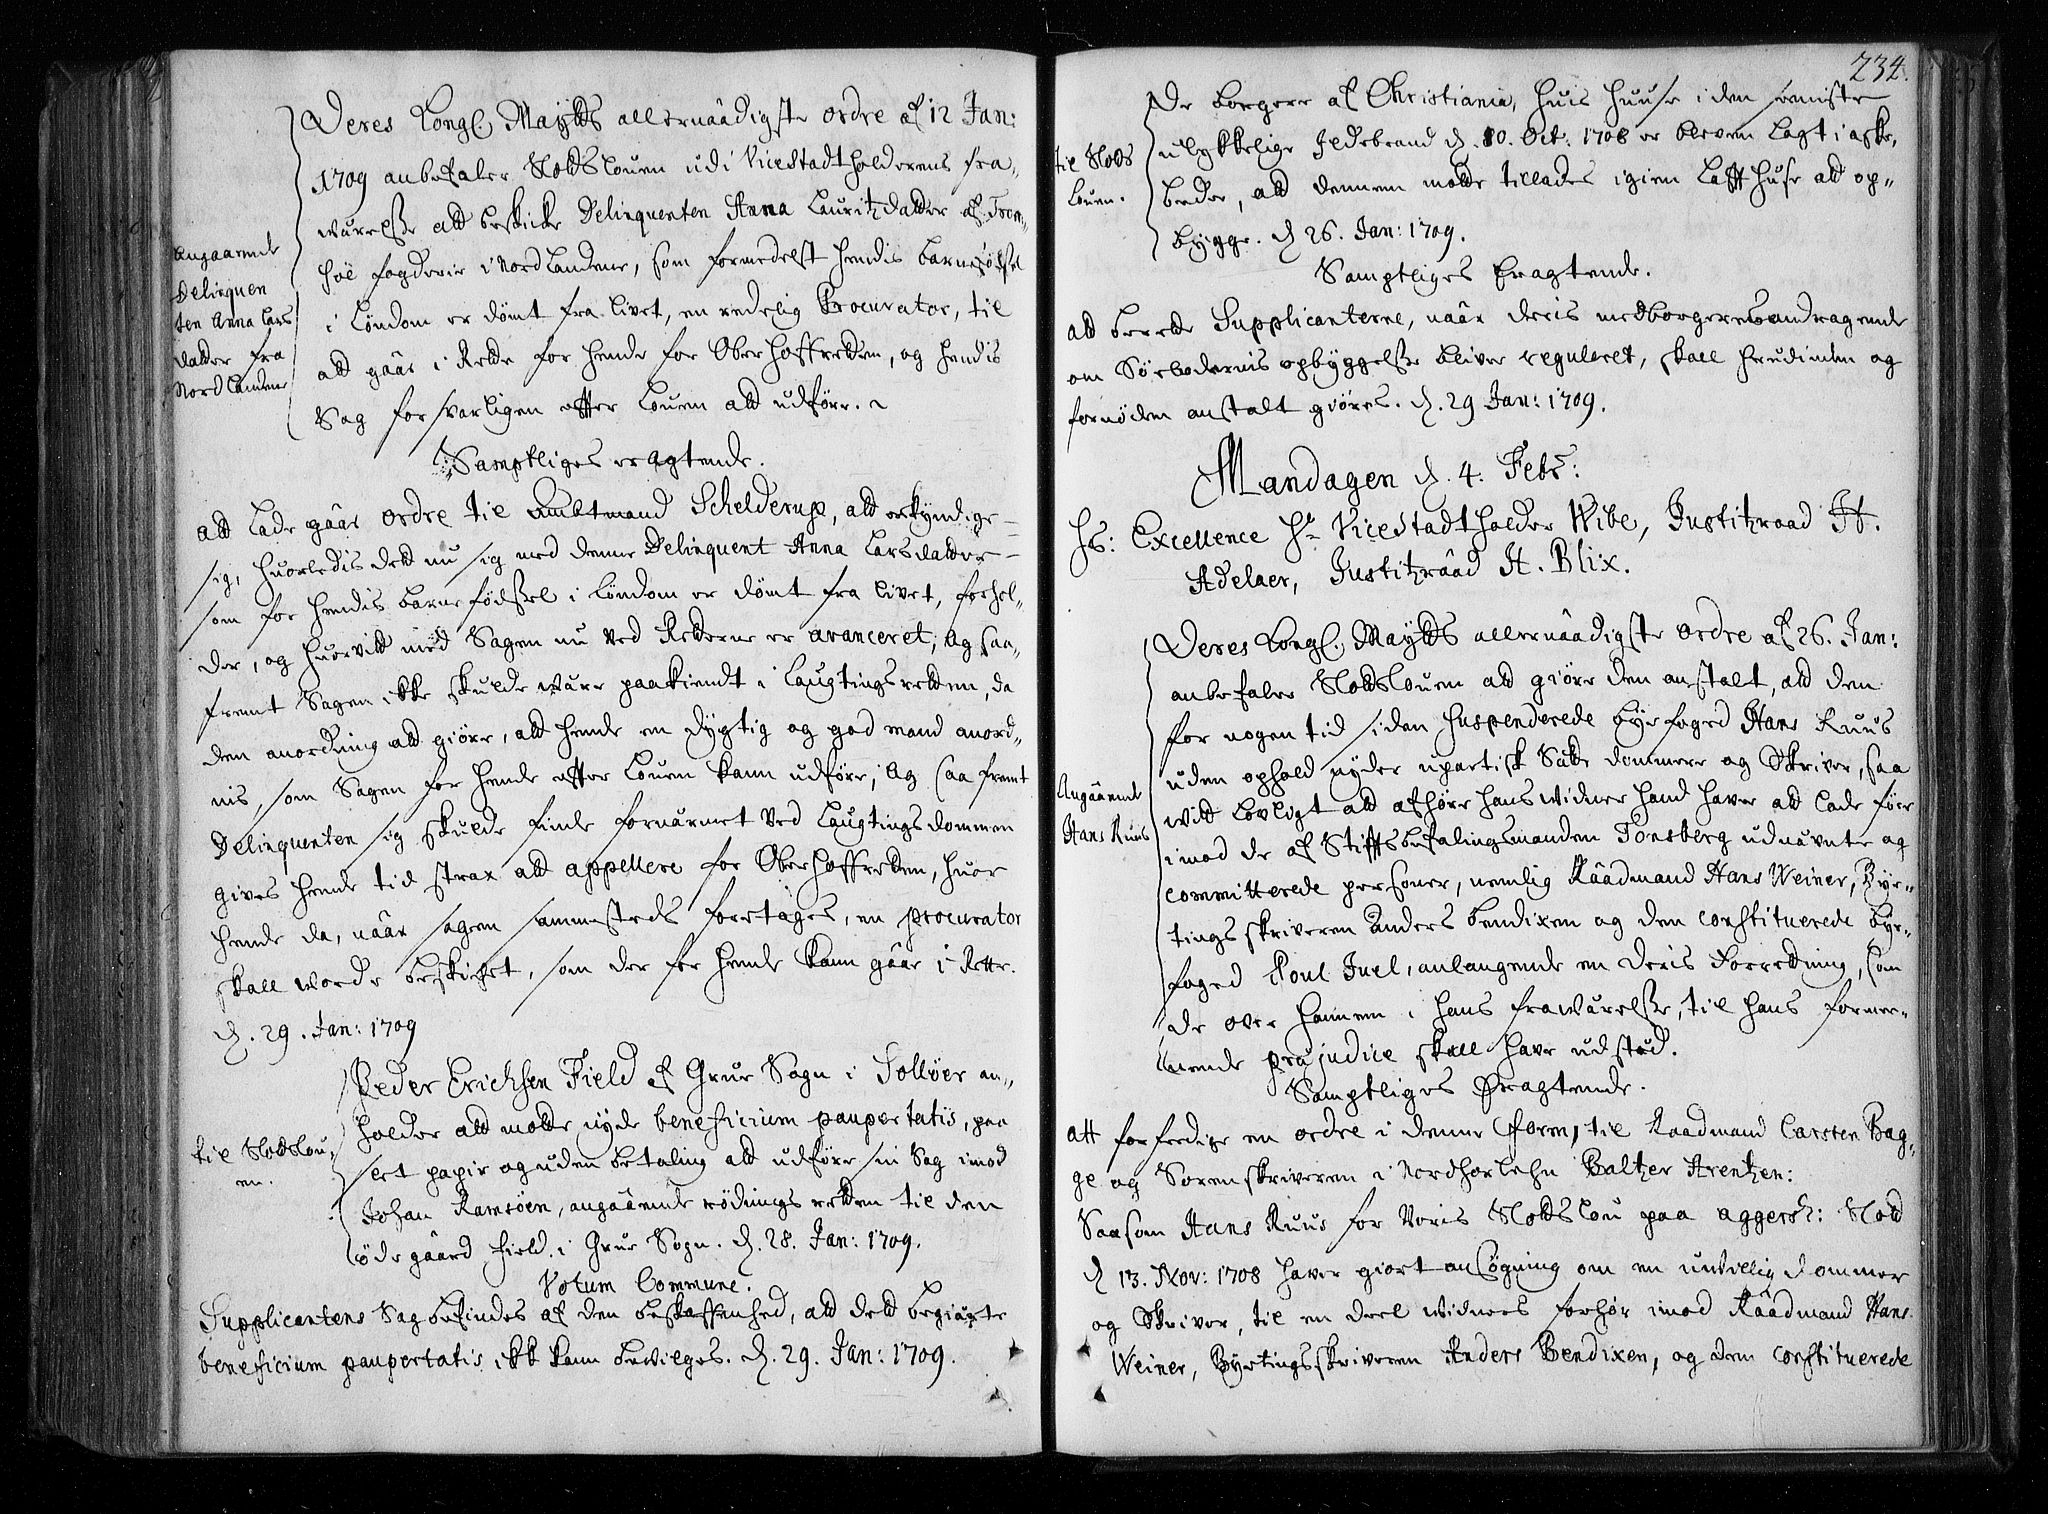 Deres Kongl. Maytts allernaadigste ordre af 12 Jan:
1709 anbefaler Slotdslouen udi Vicestadtholderens fra-
wærelsse att beskicke Delinquenten Anna Lauritzdatter af Trom-
søe fogderie i Nordlandene, som formedelst hendis barnefødsel
i Løndom er dømt fra livet, en redelig Procurator, til
att gaar i Rette for hende for Oberhoffretten, og hendis
Sag forsvarligen effter Louen att udføre.
Angaaende
Delinquen
ten Anna Lars
datter fra
Nordlandene
Samptliges eragtende.
att lade gaar ordre til Ambtmand Schelderup, att erkyndige
sig, huorledis dett nu sig med denne Delinquent Anna Larsdatter
som for hendis barnefødssel i Løndom er dømt fra livet, forhol-
der, og huorvitt med Sagen nu ved Retterne er avanceret; Og saa-
fremt Sagen ikke skulde være paakiendt i Laugtingsretten, da
den anordning att giøre, att hende en dygtig og god mand anord-
nis, som Sagen for hende effter Louen kann udføre; Og saa fremt
Delinquenten sig skulde finde fornærmet ved Laugtings dommen
gives hende tid strax att appellere for Oberhoffretten, huor
hende da, naar sagen sammesteds foretages, en procurator
skall worde beskicket, som der for hende kann gaar i Rette.
d. 29. Jan: 1709
Peder Erichsen Field af Grue Sogn i Solløer an-
holder att motte nyde beneficium paupertatis, paa
slet papir og uden betaling att udføre sin Sag imod
Johan Ramsøen, angaaende rødnings retten til den
ødegaard Field i Grue Sogn. d. 28. Jan: 1709.
til Slotdslou-
en.
Votum Commune.
Supplicantens Sag befindes af den beskaffenhed, att dett begiærte
beneficium paupertatis ikke kann bevilges. d. 29. Jan: 1709.
234.
De borgere af Christiania, huis huuse i den seeniste
ulykkelige Ildebrand d. 10. Oct. 1708 er bleven lagt i aske,
beder, att dennem motte tillades igien Lafft huse att op-
bygge. d. 26. Jan: 1709.
til Slotds
Louen.
Samptliges Eragtende.
att berette Supplicanterne, naar deris medborgeres andragende
om Søebodernis opbyggelsse bliver reguleret, skall herudinden og
fornøden anstalt giøres. d. 29 Jan: 1709.
Mandagen d. 4. Febr:
Hs: Excellence Hr. Vicestadtholder Wibe, Justitzraad H.
Adelaer, Justitzraad H. Blix.
Deres Kongl. Maytts allernaadigste ordre af 26. Jan:
anbefaler Slotdslouen att giøre den anstalt, att den
for nogen tid siden suspenderede byefoged Hans Ruus
uden ophold nyder upartisk Sætte dommere og Skriver, saa
witt lovligt att afhøre hans widner hand haver att lade føre
imod de af Stifftsbefalingsmanden Tønsberg udnævnte og
committerede personer, nemlig Raadmand Hans Weiner, Bye-
tingsskriveren Anders Bendixen og den constituerede bye-
foged Poul Juel, anlangende en deris Forretning, som
de over hannem i hans frawærelsse, til hans formee-
nende præjudice skall have udstæd.
Angaaende
Hans Ruus
Samptliges Eragtende.
att forferdige en ordre i denne Form, til Raadmand Carsten Bag-
ge og Sorenskriveren i Nordhorlehn Baltzer Arentzen:
Saasom Hans Ruus for Voris Slotdslou paa Aggersh: Slott
d 13. Nov: 1708 haver giort ansøgning om en uvillig dommer
og Skriver, til en deel widners forhør imod Raadmand Hans
Weiner, Byetingsskriveren Anders Bendixen, og den constituerede